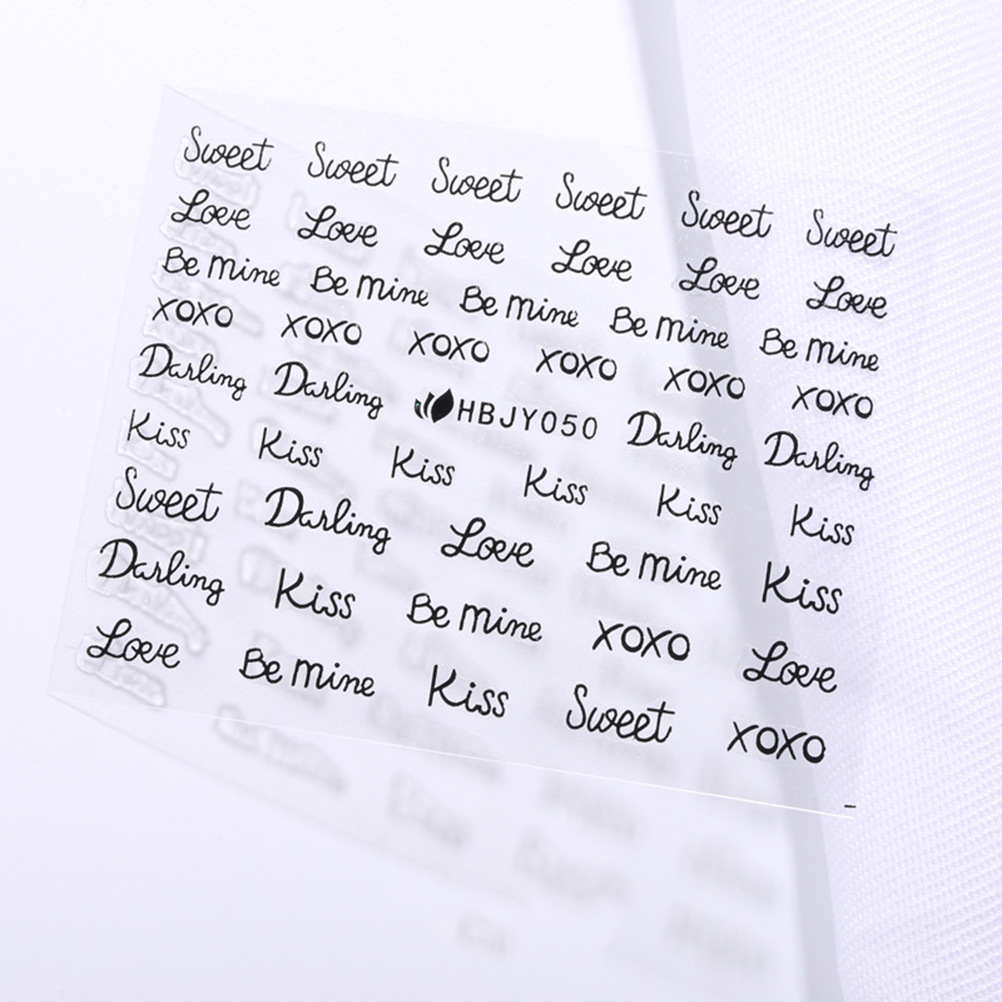 Sweet Sweet Sweet Sweet Sweet Sweet
Love Love Love Love Love Love
Be mine Be mine Be mine Be mine Be mine
XOXO XOXO XOXO XOXO XOXO XOXO
Darling Darling HBJY050 Darling Darling
Kiss Kiss Kiss Kiss Kiss Kiss
Sweet Darling Love Be mine Kiss
Darling Kiss Be mine XOXO Love
Love Be mine Kiss Sweet XOXO